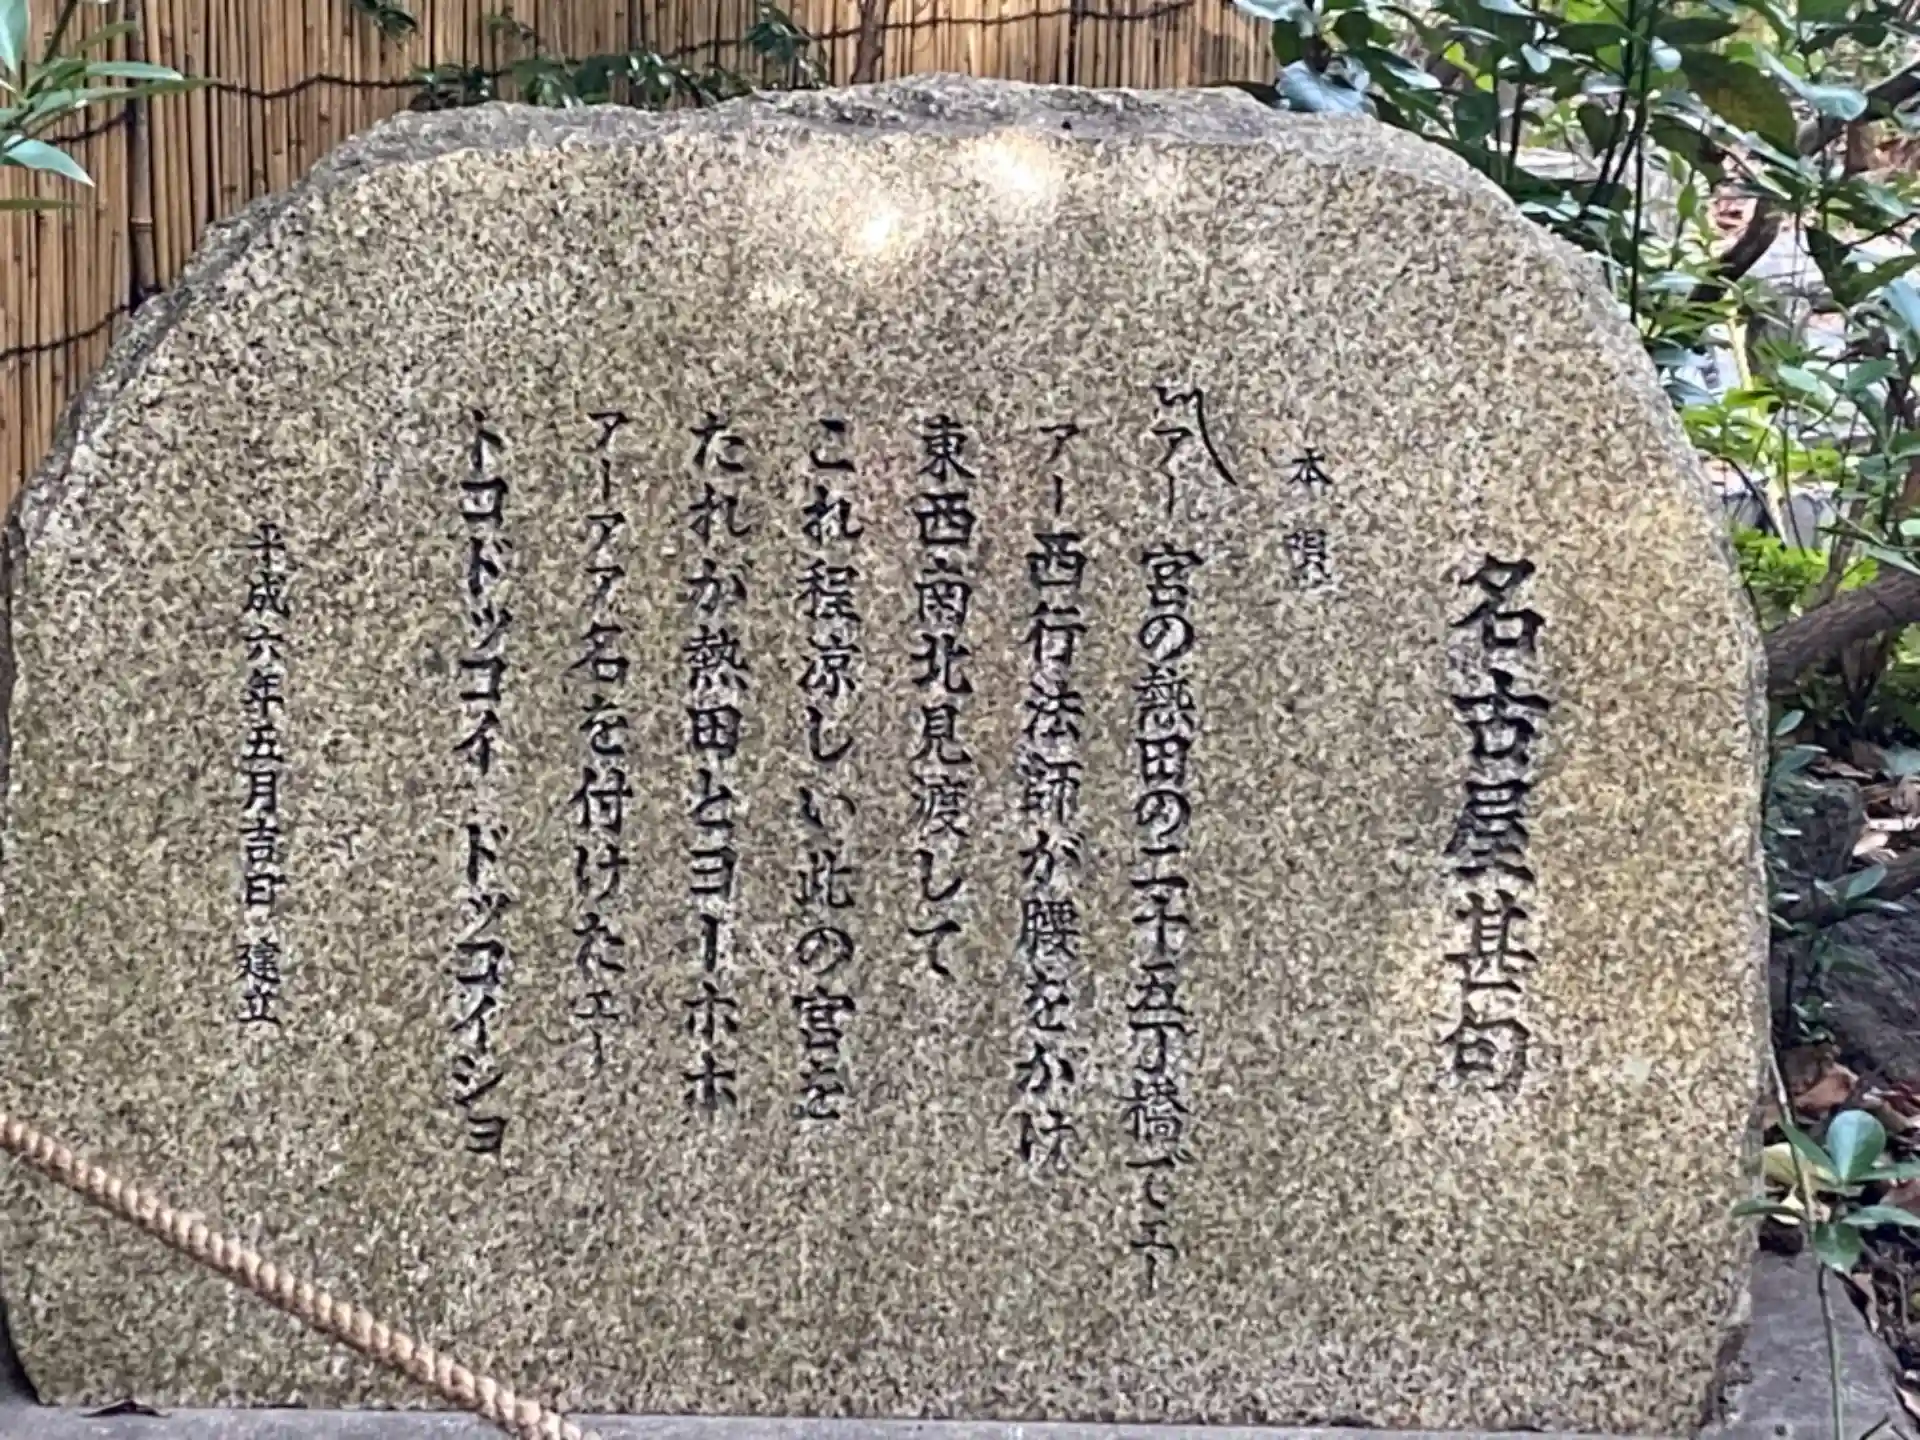 名古屋甚句
本唄
〽アー宮の熱田の二十五丁橋でエー
アー西行法師が腰をがけ
東西南北見渡して
これ程涼しい此の宮を
たれが熱田とヨーホホ
アーアア名を付けたエー
トコドッコイ ドッコイショ
平成六年五月吉日 建立